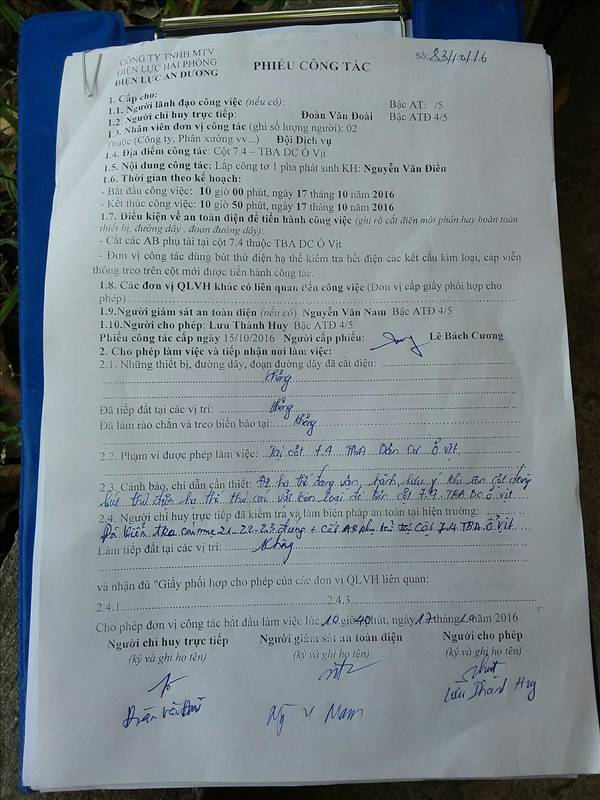 CÔNG TY TNHH MTV
ĐIỆN LỰC HẢI PHÒNG
ĐIỆN LỰC AN DƯƠNG
PHIẾU CÔNG TÁC
Số: 83/10/16
1. Cấp cho:
1.1. Người lãnh đạo công việc (nếu có): Bậc AT: /5
1.2. Người chỉ huy trực tiếp: Đoàn Văn Đoài Bậc ATĐ 4/5
1.3. Nhân viên đơn vị công tác (ghi số lượng người): 02
Thuộc (Công ty, Phân xưởng vv...) Đội Dịch vụ
1.4. Địa điểm công tác: Cột 7.4 – TBA DC Ổ Vịt
1.5. Nội dung công tác: Lắp công tơ 1 pha phát sinh KH: Nguyễn Văn Điền
1.6. Thời gian theo kế hoạch:
- Bắt đầu công việc: 10 giờ 00 phút, ngày 17 tháng 10 năm 2016
- Kết thúc công việc: 10 giờ 50 phút, ngày 17 tháng 10 năm 2016
1.7. Điều kiện về an toàn điện để tiến hành công việc (ghi rõ cắt điện một phần hay hoàn toàn
thiết bị, đường dây, đoạn đường dây):
- Cắt các AB phụ tải tại cột 7.4 thuộc TBA DC Ổ Vịt
- Đơn vị công tác dùng bút thử điện hạ thế kiểm tra hết điện các kết cấu kim loại, cáp viễn
thông treo trên cột mới được tiến hành công tác.
1.8. Các đơn vị QLVH khác có liên quan đến công việc (Đơn vị cấp giấy phối hợp cho
phép)
1.9.Người giám sát an toàn điện (nếu có) Nguyễn Văn Nam Bậc ATĐ 4/5
1.10.Người cho phép: Lưu Thành Huy Bậc ATĐ 4/5
Phiếu công tác cấp ngày 15/10/2016 Người cấp phiếu: Lê Bách Cương
2. Cho phép làm việc và tiếp nhận nơi làm việc:
2.1. Những thiết bị, đường dây, đoạn đường dây đã cắt điện:
Không
Đã tiếp đất tại các vị trí: Không
Đã làm rào chắn và treo biển báo tại: Không
2.2. Phạm vi được phép làm việc: Tại cột 7.4 TBA Dân Cư Ổ Vịt
2.3. Cảnh báo, chỉ dẫn cần thiết: ĐZ hạ thế đang vận hành, lưu ý khi lên cột dùng
bút thử điện hạ thế thử các vật kim loại để trên cột 7.4 TBA DC Ổ Vịt
2.4. Người chỉ huy trực tiếp đã kiểm tra và làm biện pháp an toàn tại hiện trường:
Đã kiểm tra các mục 21-22-23 đúng + cắt AB phụ tải tại cột 7.4 TBA Ổ Vịt
Làm tiếp đất tại các vị trí: Không
và nhận đủ "Giấy phối hợp cho phép của các đơn vị QLVH liên quan:
2.4.1 2.4.3
Cho phép đơn vị công tác bắt đầu làm việc lúc 10 giờ 40 phút, ngày 17 tháng 10 năm 2016
Người chỉ huy trực tiếp Người giám sát an toàn điện Người cho phép
(ký và ghi họ tên) (ký và ghi họ tên) (ký và ghi họ tên)
Đoàn Văn Đoài Ng V Nam Lưu Thành Huy